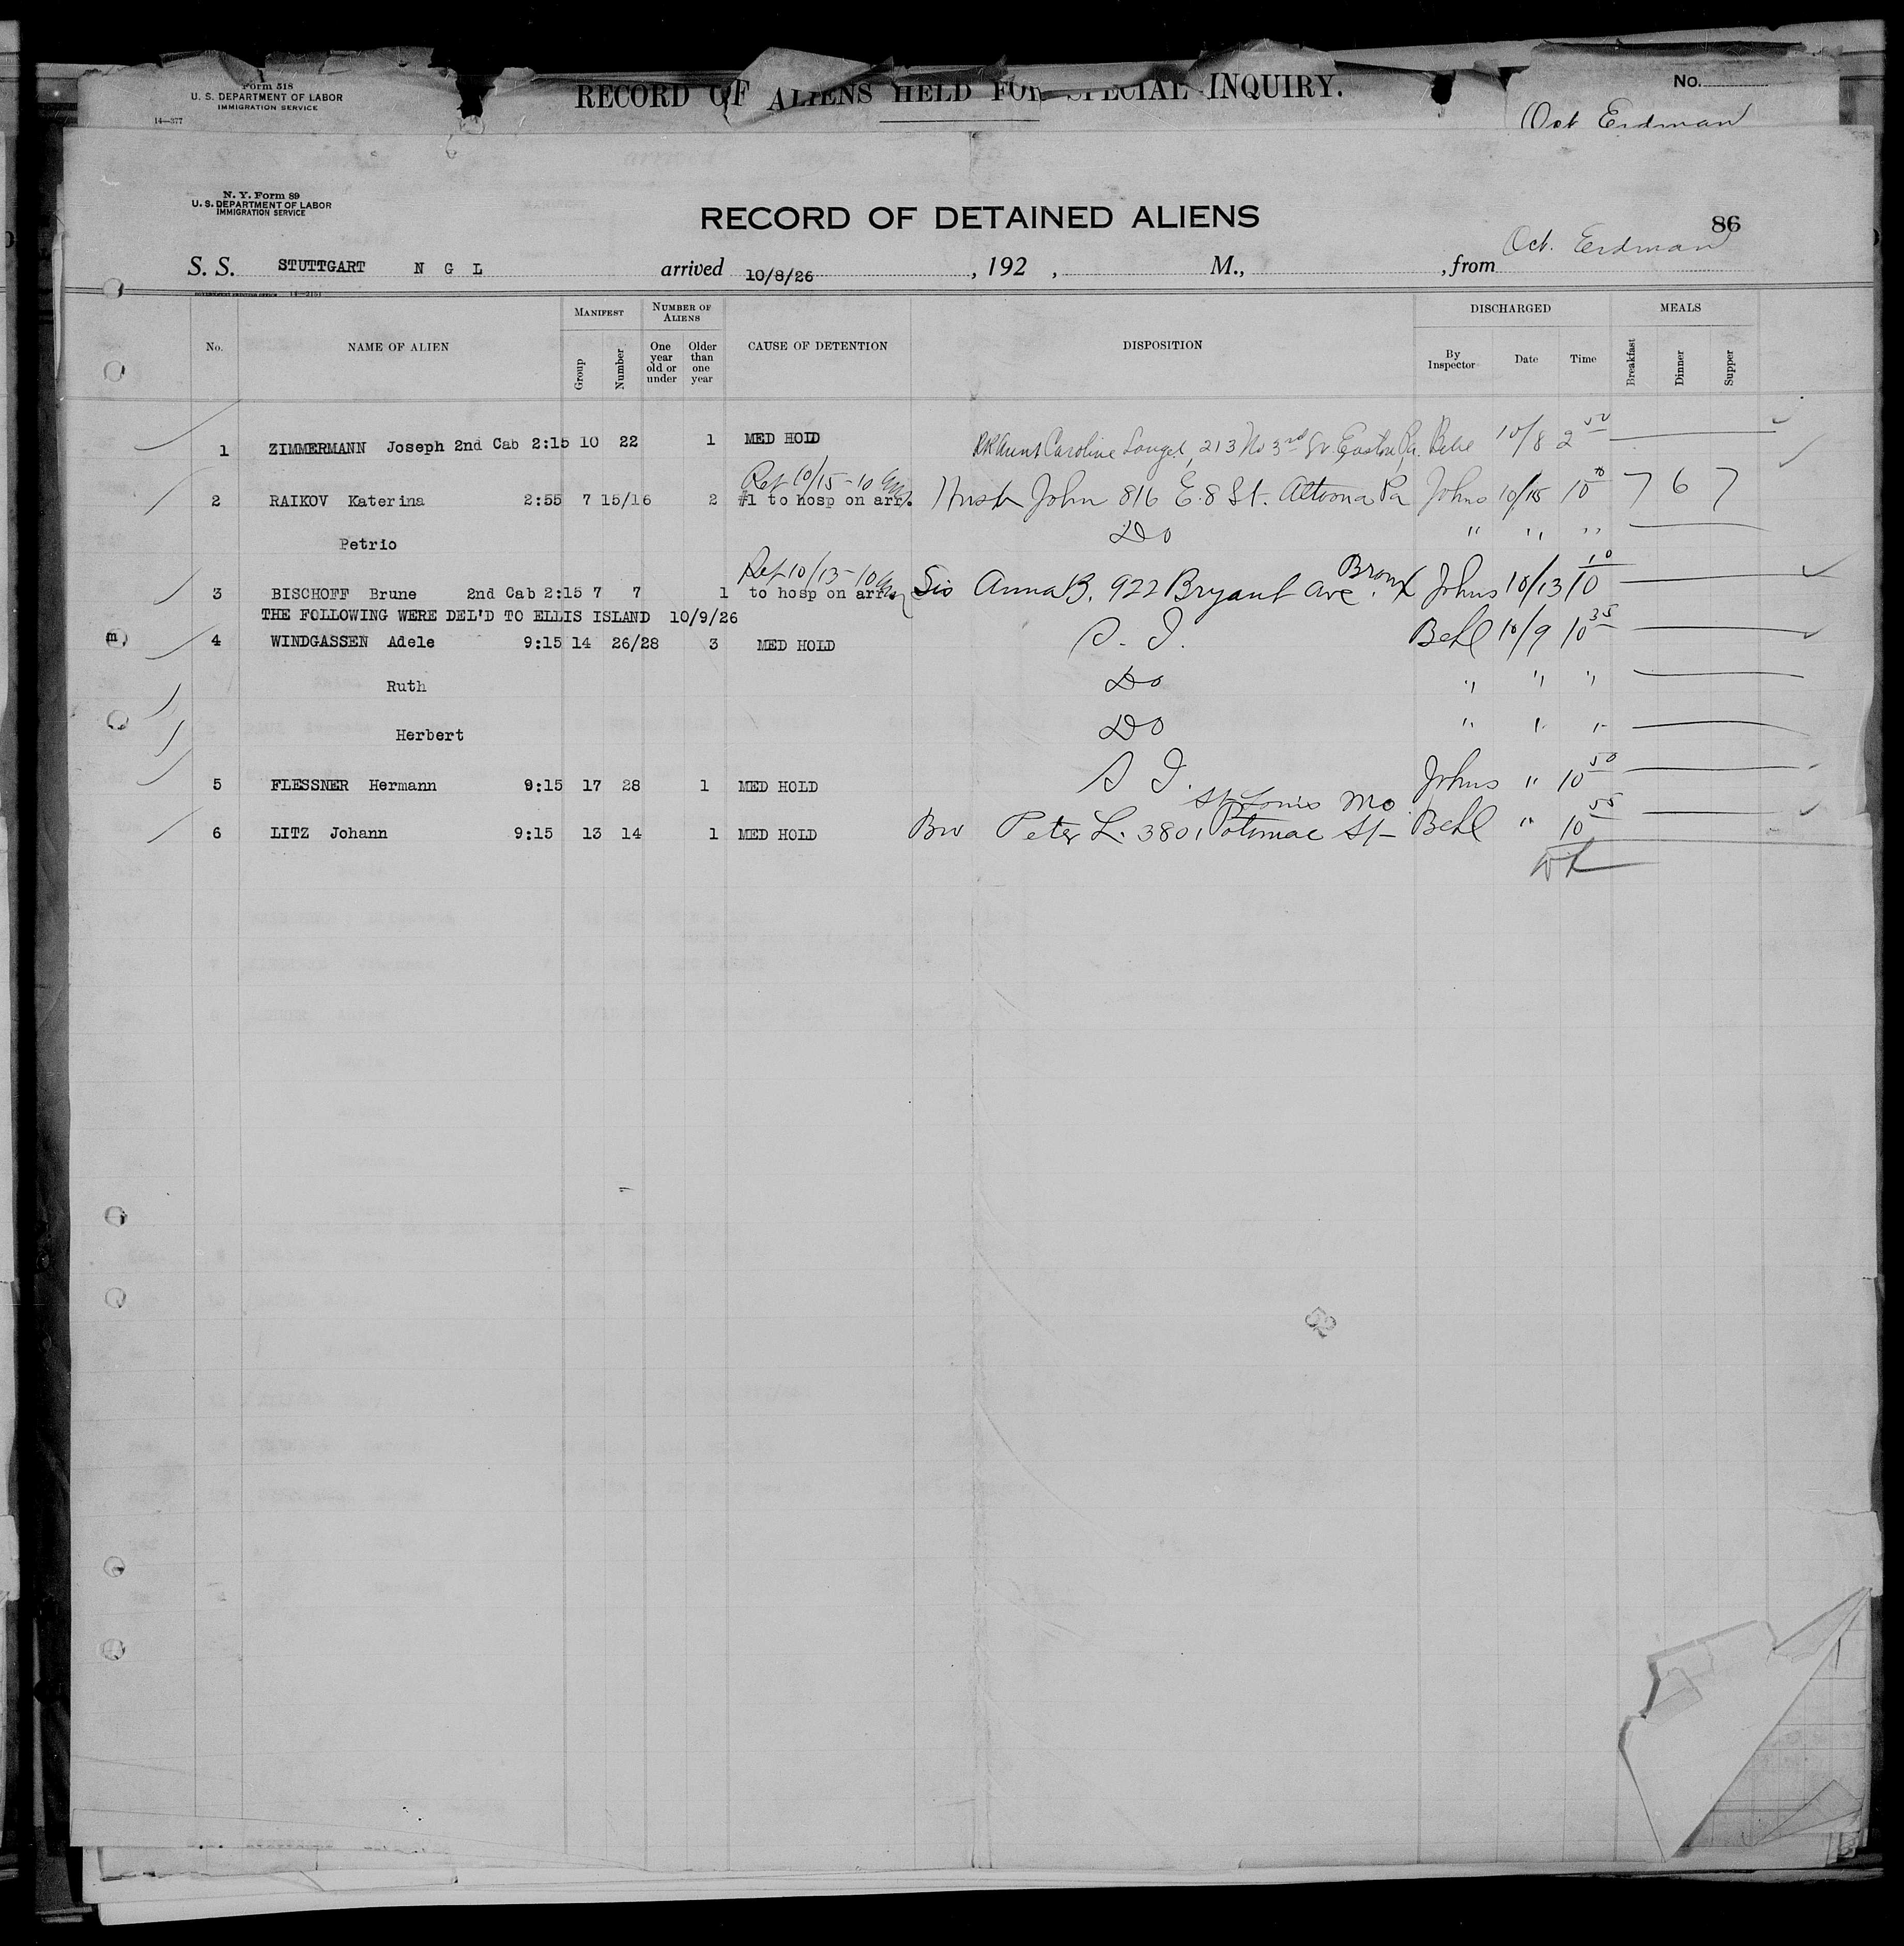 Form 518
U. S. DEPARTMENT OF LABOR
IMMIGRATION SERVICE
14—377
RECORD OF ALIENS HELD FOR SPECIAL INQUIRY.
No.
Oct Erdman
N. Y. Form 89
U. S. DEPARTMENT OF LABOR
IMMIGRATION SERVICE
RECORD OF DETAINED ALIENS
86
Oct. Erdman
S. S. STUTTGART N G L arrived 10/8/26, 192 , M., , from
No. NAME OF ALIEN MANIFEST Group Number NUMBER OF ALIENS One year old or under Older than one year CAUSE OF DETENTION DISPOSITION DISCHARGED By Inspector Date Time MEALS Breakfast Dinner Supper
1 ZIMMERMANN Joseph 2nd Cab 2:15 10 22 1 MED HOLD Aunt Caroline 213 No 3rd St. Easton, Pa. Behl 10/8 2 50
Ref 10/15 - 10
2 RAIKOV Katerina 2:55 7 15/16 2 #1 to hosp on arr. Husb John 816 E. 8 St. Altoona Pa Johns 10/15 10 7 6 7
Petrio Do " " "
Ref 10/13 - 10 Bronx
3 BISCHOFF Brune 2nd Cab 2:15 7 7 1 to hosp on arr. Sis Anna B. 922 Bryant Ave. Johns 10/13 10 10
THE FOLLOWING WERE DEL'D TO ELLIS ISLAND 10/9/26
m 4 WINDGASSEN Adele 9:15 14 26/28 3 MED HOLD S. I. Behl 10/9 10 35
Ruth Do " " "
Herbert Do " " "
5 FLESSNER Hermann 9:15 17 28 1 MED HOLD S I. Johns " 10 50
St. Louis Mo
6 LITZ Johann 9:15 13 14 1 MED HOLD Bro Peter L. 3801 Potomac St Behl " 10 55